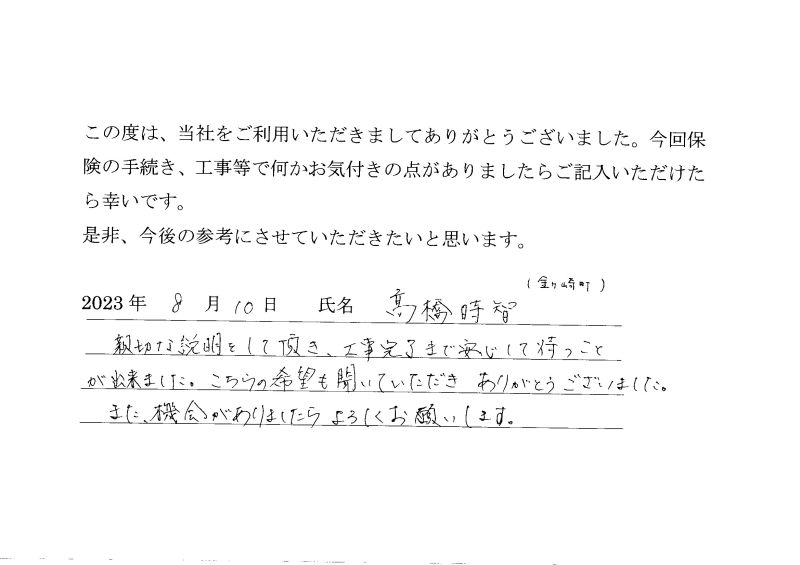 この度は、当社をご利用いただきましてありがとうございました。今回保
険の手続き、工事等で何かお気付きの点がありましたらご記入いただけた
ら幸いです。
是非、今後の参考にさせていただきたいと思います。
(金ヶ崎町)
2023 年 8 月 10 日 氏名 髙橋時智
親切な説明をして頂き、工事完了まで安心して待つこと
が出来ました。こちらの希望も聞いていただき ありがとうございました。
また、機会がありましたら よろしくお願いします。